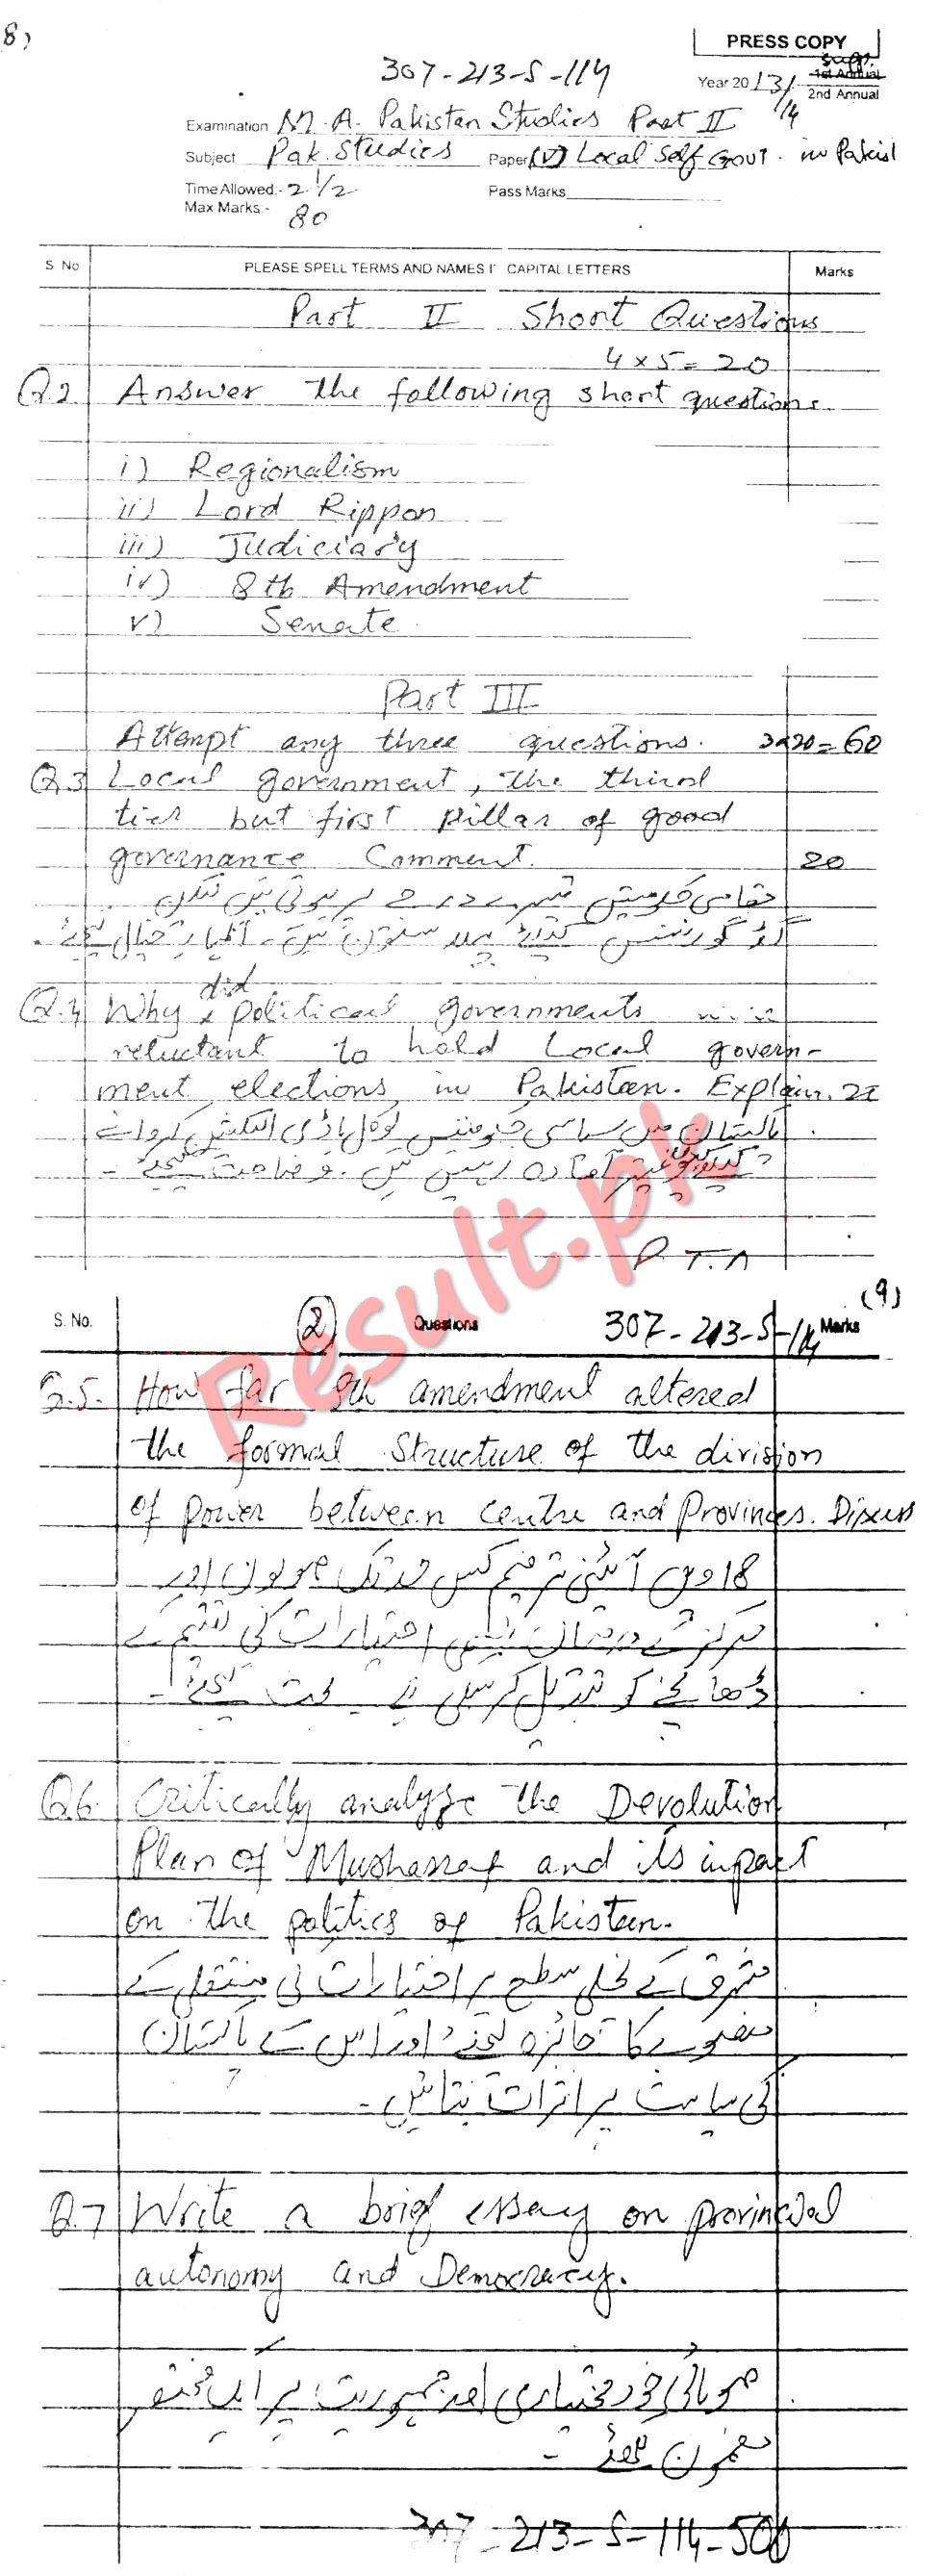 8)
PRESS COPY
307-213-S-114
Supp.
Year 2013/14 1st Annual
2nd Annual
Examination M.A. Pakistan Studies Part II
Subject Pak. Studies Paper (V) Local Self Govt. in Pakist
Time Allowed:- 2 1/2 Pass Marks
Max Marks:- 80
S. No PLEASE SPELL TERMS AND NAMES I' CAPITAL LETTERS Marks
Part II Short Questions
4 x 5 = 20
Q.2 Answer the following short questions.
i) Regionalism
ii) Lord Rippon
iii) Judiciary
iv) 8th Amendment
v) Senate
Part III
Attempt any three questions. 3x20=60
Q.3 Local government, the third
tier but first pillar of good
governance Comment. 20
مقامی حکومتیں تیسرے درجے پر ہوتی ہیں لیکن
گڈ گورننس کیلئے پہلا ستون ہیں۔ اظہار خیال کیجئے۔
Q.4 Why did political governments were
reluctant to hold Local govern-
ment elections in Pakistan. Explain.
پاکستان میں سیاسی حکومتیں لوکل باڈی الیکشن کروانے
کیلئے کیوں غیر آمادہ رہیں ہیں۔ وضاحت کیجئے۔
P.T.O
(9)
S. No. (2) Questions 307-213-S-114 Marks
Q.5. How far 8th amendment altered
the formal structure of the division
of power between centre and Provinces. Discuss
18ویں آئینی ترمیم کس حد تک صوبوں اور
مرکز کے درمیان اختیارات کی تقسیم کے
ڈھانچے کو تبدیل کرسکی ہے۔ بحث کیجئے۔
Q.6. Critically analyze the Devolution
Plan of Musharraf and its impact
on the politics of Pakistan.
مشرف کے نچلی سطح پر اختیارات کی منتقلی کے
منصوبے کا جائزہ لیجئے اور اس کے پاکستان
کی سیاست پر اثرات بتائیں۔
Q.7 Write a brief essay on provincial
autonomy and Democracy.
صوبائی خود مختاری اور جمہوریت پر ایک مختصر
مضمون لکھئے۔
307-213-S-114-500
Result.pk